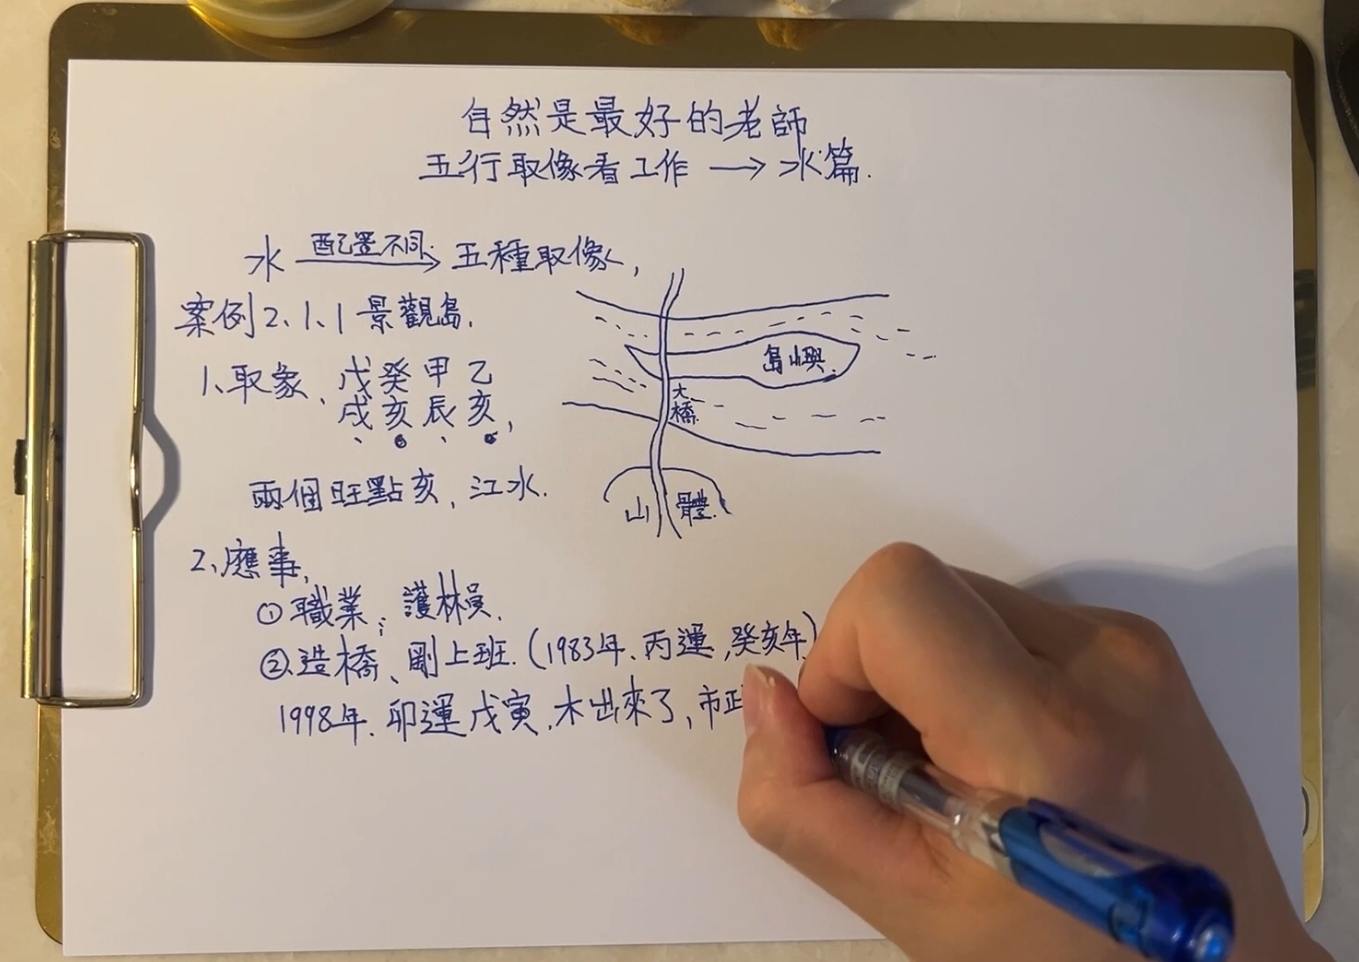 自然是最好的老師
五行取像看工作 → 水篇.
水 配置不同: → 五種取像,
案例2、1、1 景觀島.
1、取象、戊癸甲乙
戌亥辰亥,
兩個旺點亥, 江水.
島嶼.
大橋.
山體.
2、應事,
①職業: 護林員.
②造橋、剛上班. (1983年. 丙運, 癸亥年.)
1998年. 卯運戊寅. 木出來了, 市正